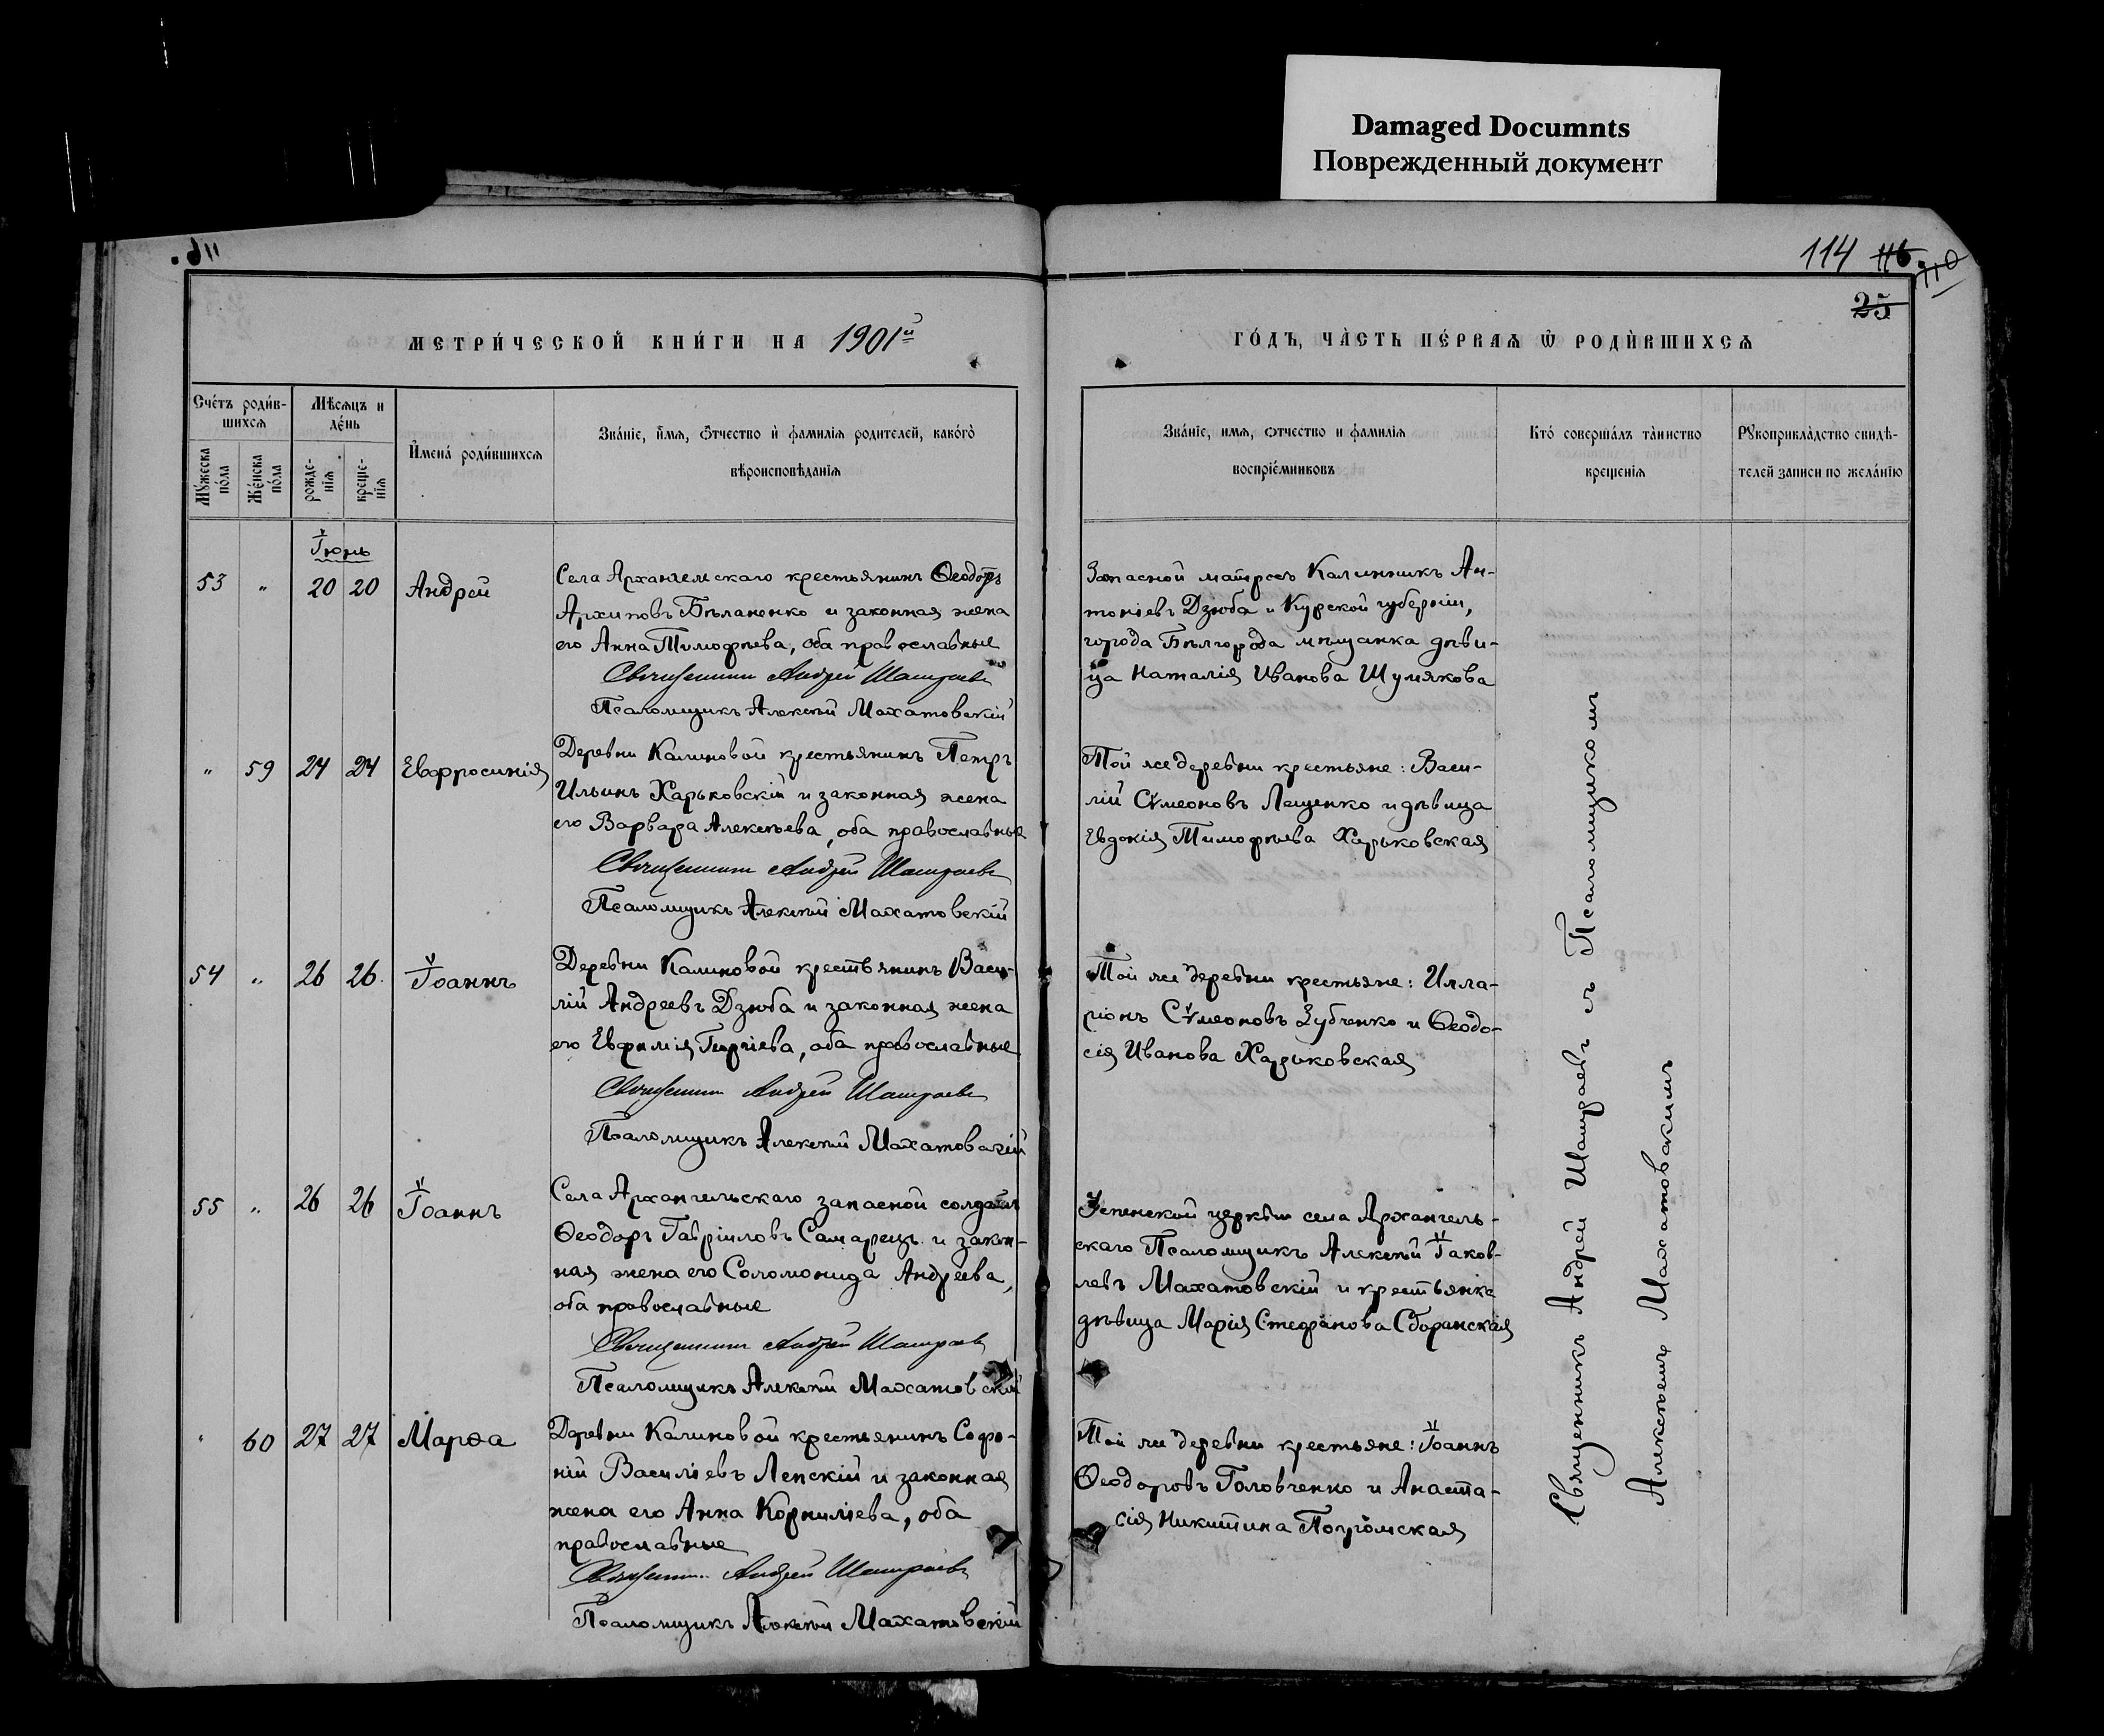 Damaged Documnts
Поврежденный документ
114 116. 110
25
МЕТРИ́ЧЕСКОЙ КНИ́ГИ НА 1901й
ГО́ДЪ, ЧА̀СТЬ ПЕ́РВАѦ Ѿ РОДИ́ВШИХСѦ
Сче́тъ роди́в-
шихсѧ
Мѣ́сѧцъ и
де́нь
Мꙋ́жеска по́ла
Же́нска по́ла
рожде-
нїѧ
креще-
нїѧ
И҆мена̀ роди́вшихсѧ
Зва́нїе, и҆́мѧ, ѻ҆́тчество и҆ фами́лїѧ роди́телей, како́гѡ
вѣроисповѣ́данїѧ
Зва́нїе, имѧ, ѻтчество и фами́лїѧ
воспрїе́мниковъ
Кто̀ соверша́лъ та́инство
креще́нїѧ
Рꙋкоприкла́дство свидѣ́-
телей записи по жела́нїю
Іюнь
53 " 20 20 Андрей
Села Архангельскаго крестьянинъ Ѳеодоръ
Архиповъ Бѣланенко и законная жена
его Анна Тимофѣева, оба православные
Священникъ Андрей Шапраевъ
Псаломщикъ Алексѣй Махатовскій
Запасной матросъ Калинникъ Ан-
тоніевъ Дзюба и Курской губерніи,
города Бѣлгорода мѣщанка дѣви-
ца Наталія Иванова Шумякова
" 59 24 24 Евфросинія
Деревни Калиновой крестьянинъ Петръ
Ильинъ Харьковскій и законная жена
его Варвара Алексѣева, оба православные
Священникъ Андрей Шапраевъ
Псаломщикъ Алексѣй Махатовскій
Той же деревни крестьяне: Васи-
лій Сѵмеоновъ Лещенко и дѣвица
Евдокія Тимофѣева Харьковская
54 " 26 26 Іоаннъ
Деревни Калиновой крестьянинъ Васи-
лій Андреевъ Дзюба и законная жена
его Евфимія Георгіева, оба православные
Священникъ Андрей Шапраевъ
Псаломщикъ Алексѣй Махатовскій
Той же деревни крестьяне: Илла-
ріонъ Сѵмеоновъ Зубченко и Ѳеодо-
сія Иванова Харьковская
55 " 26 26 Іоаннъ
Села Архангельскаго запасной солдатъ
Ѳеодоръ Гавріиловъ Самарецъ и закон-
ная жена его Соломонида Андреева,
оба православные
Священникъ Андрей Шапраевъ
Псаломщикъ Алексѣй Махатовскій
Успенской церкви села Архангель-
скаго Псаломщикъ Алексѣй Іаков-
левъ Махатовскій и крестьянка
дѣвица Марія Стефанова Сборанская
" 60 27 27 Марѳа
Деревни Калиновой крестьянинъ Софо-
ній Василіевъ Лепскій и законная
жена его Анна Корниліева, оба
православные
Священникъ Андрей Шапраевъ
Псаломщикъ Алексѣй Махатовскій
Той же деревни крестьяне: Іоаннъ
Ѳеодоровъ Головченко и Анаста-
сія Никитина
Священникъ Андрей Шапраевъ съ Псаломщикомъ
Алексѣемъ Махатовскимъ